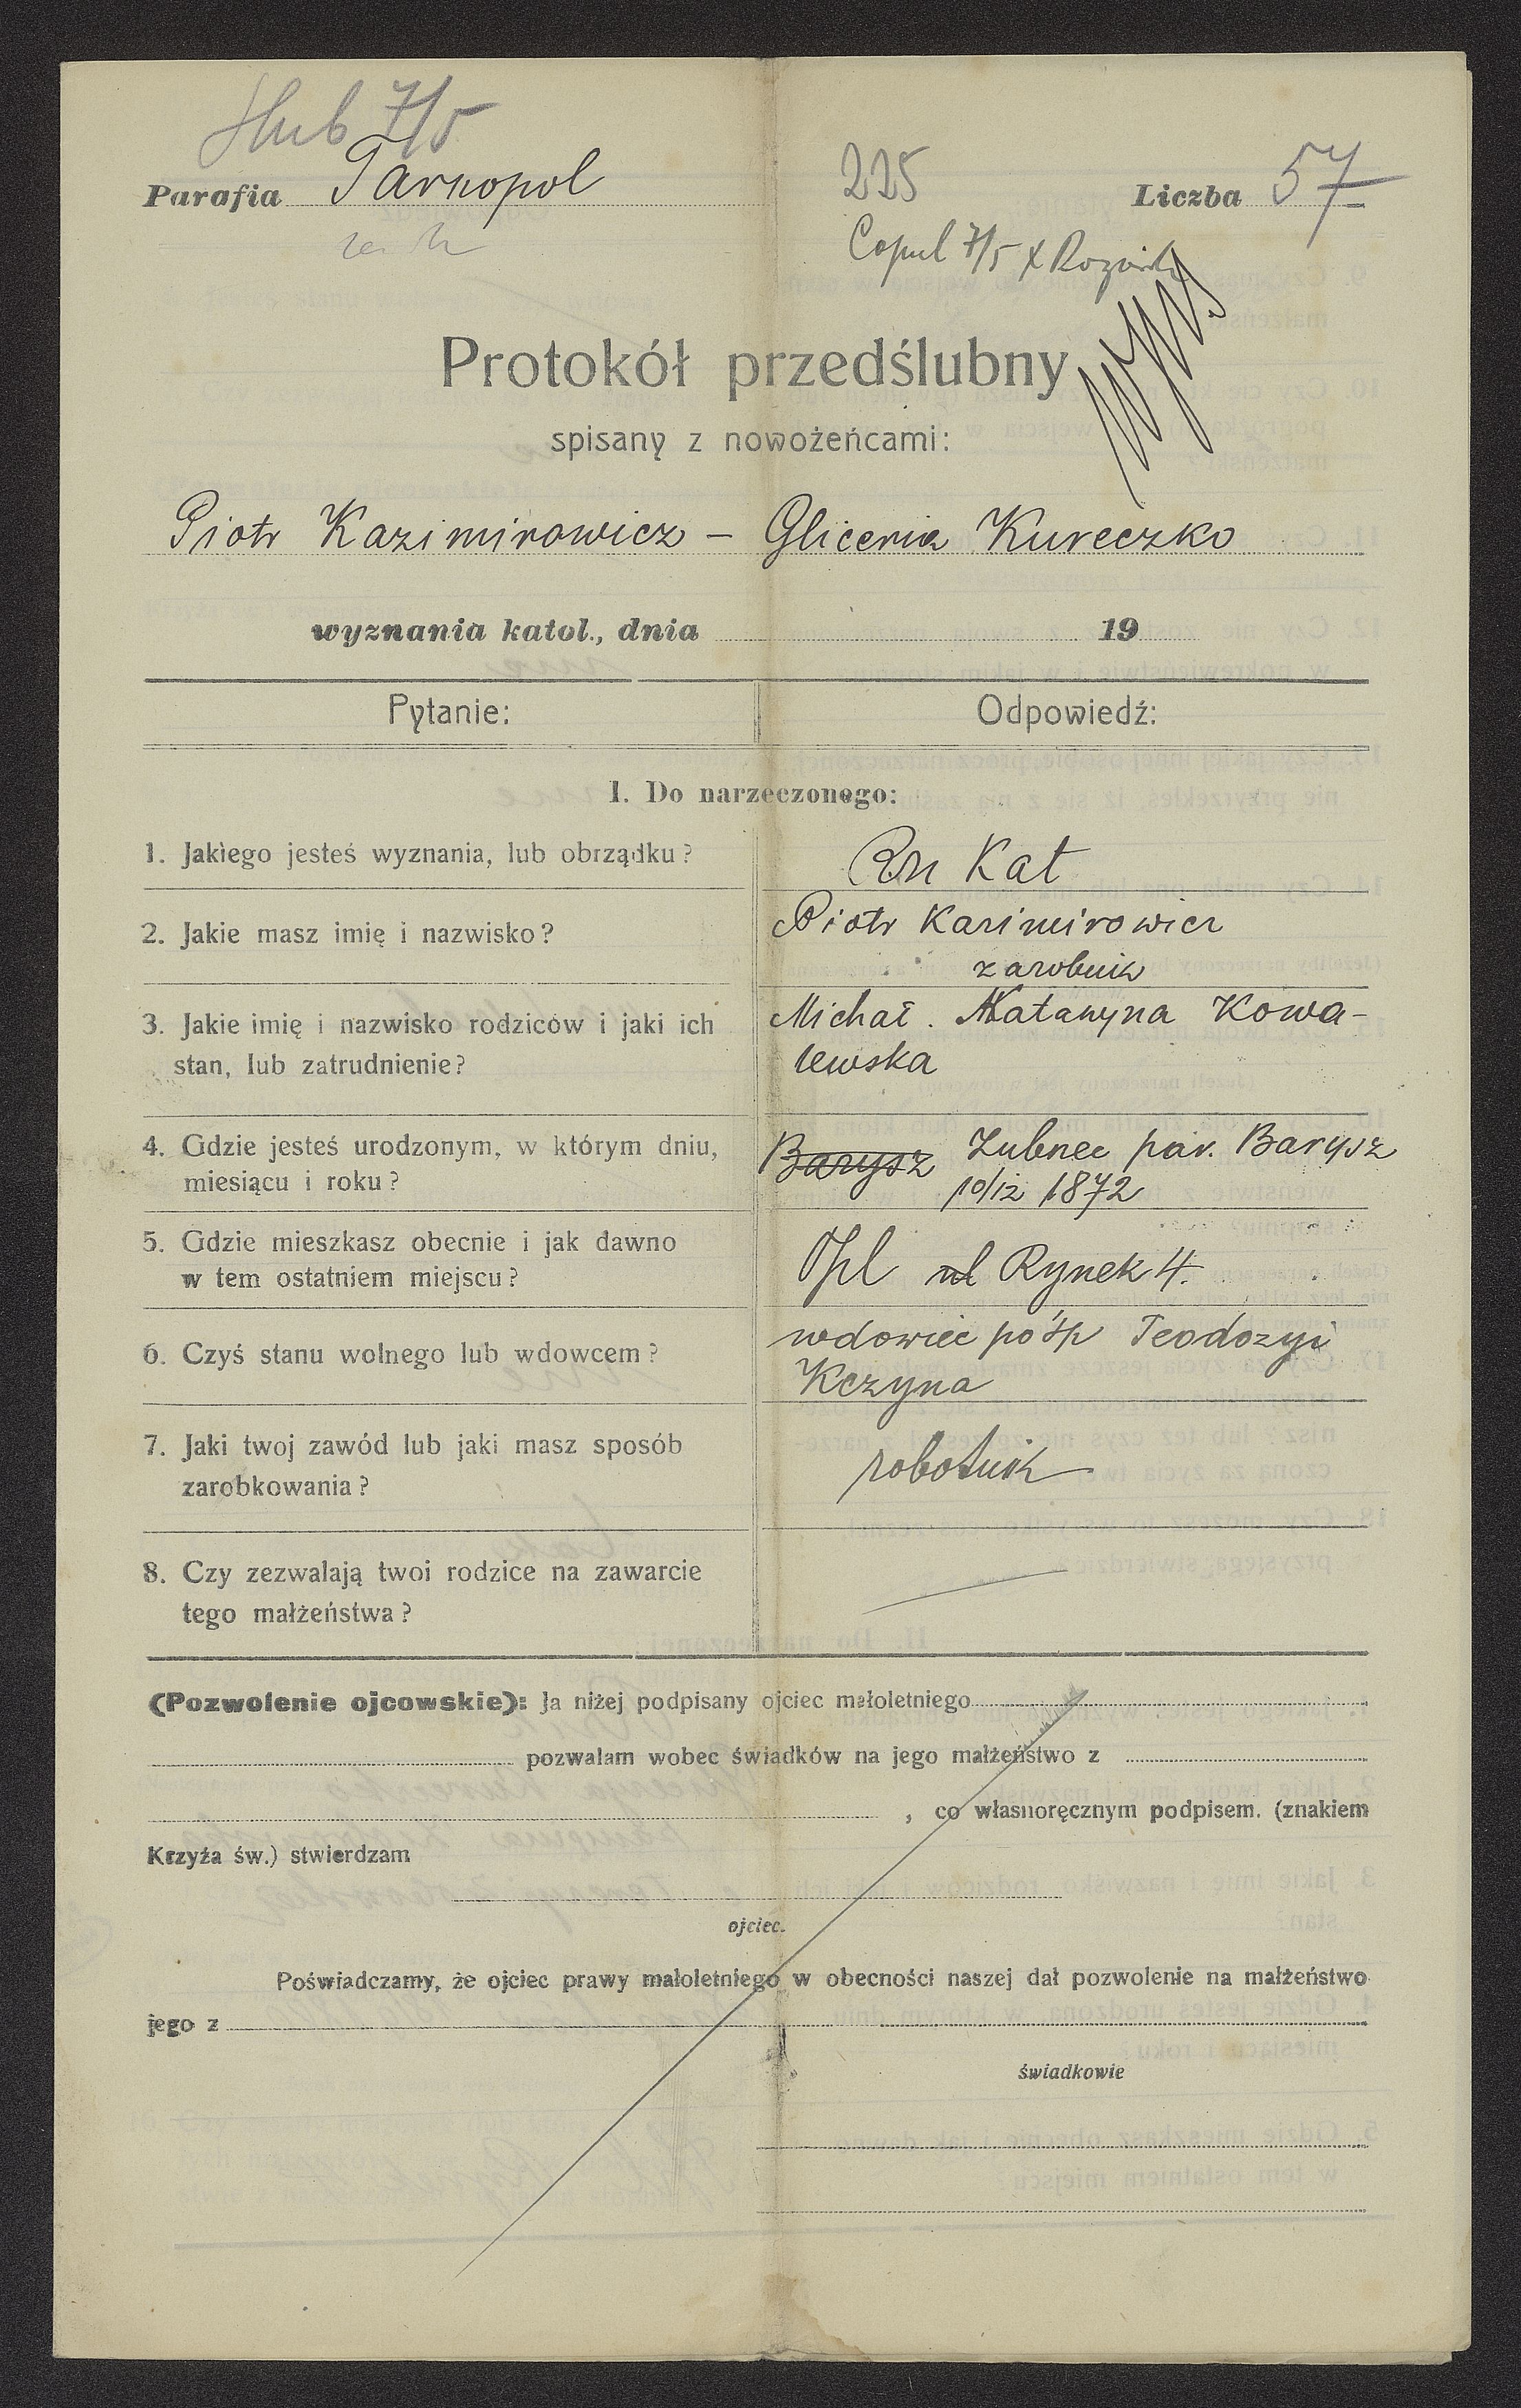 Ślub 7/5
Parafia Tarnopol
225
Liczba 57
Copul 7/5 X
Protokół przedślubny
spisany z nowożeńcami:
Piotr Kazimirowicz – Gliceria Kureczko
wyznania katol., dnia 19
Pytanie: Odpowiedź:
I. Do narzeczonego:
1. Jakiego jesteś wyznania, lub obrządku?
Rzn Kat
2. Jakie masz imię i nazwisko?
Piotr Kazimirowicz
zarobnik
3. Jakie imię i nazwisko rodziców i jaki ich
stan, lub zatrudnienie?
Michał. Katarzyna Kowa-
lewska
4. Gdzie jesteś urodzonym, w którym dniu,
miesiącu i roku?
Barysz Zubrzec par. Barysz
10/12 1872
5. Gdzie mieszkasz obecnie i jak dawno
w tem ostatniem miejscu?
Tpl ul Rynek 4.
6. Czyś stanu wolnego lub wdowcem?
wdowiec po śp Teodozyi
Kczyna
7. Jaki twoj zawód lub jaki masz sposób
zarobkowania?
robotnik
8. Czy zezwalają twoi rodzice na zawarcie
tego małżeństwa?
(Pozwolenie ojcowskie): Ja niżej podpisany ojciec małoletniego
pozwalam wobec świadków na jego małżeństwo z
, co własnoręcznym podpisem. (znakiem
Krzyża św.) stwierdzam
ojciec.
Poświadczamy, że ojciec prawy małoletniego w obecności naszej dał pozwolenie na małżeństwo
jego z
świadkowie